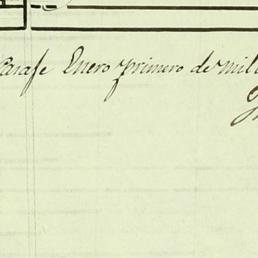 Parage Enero primero de mil